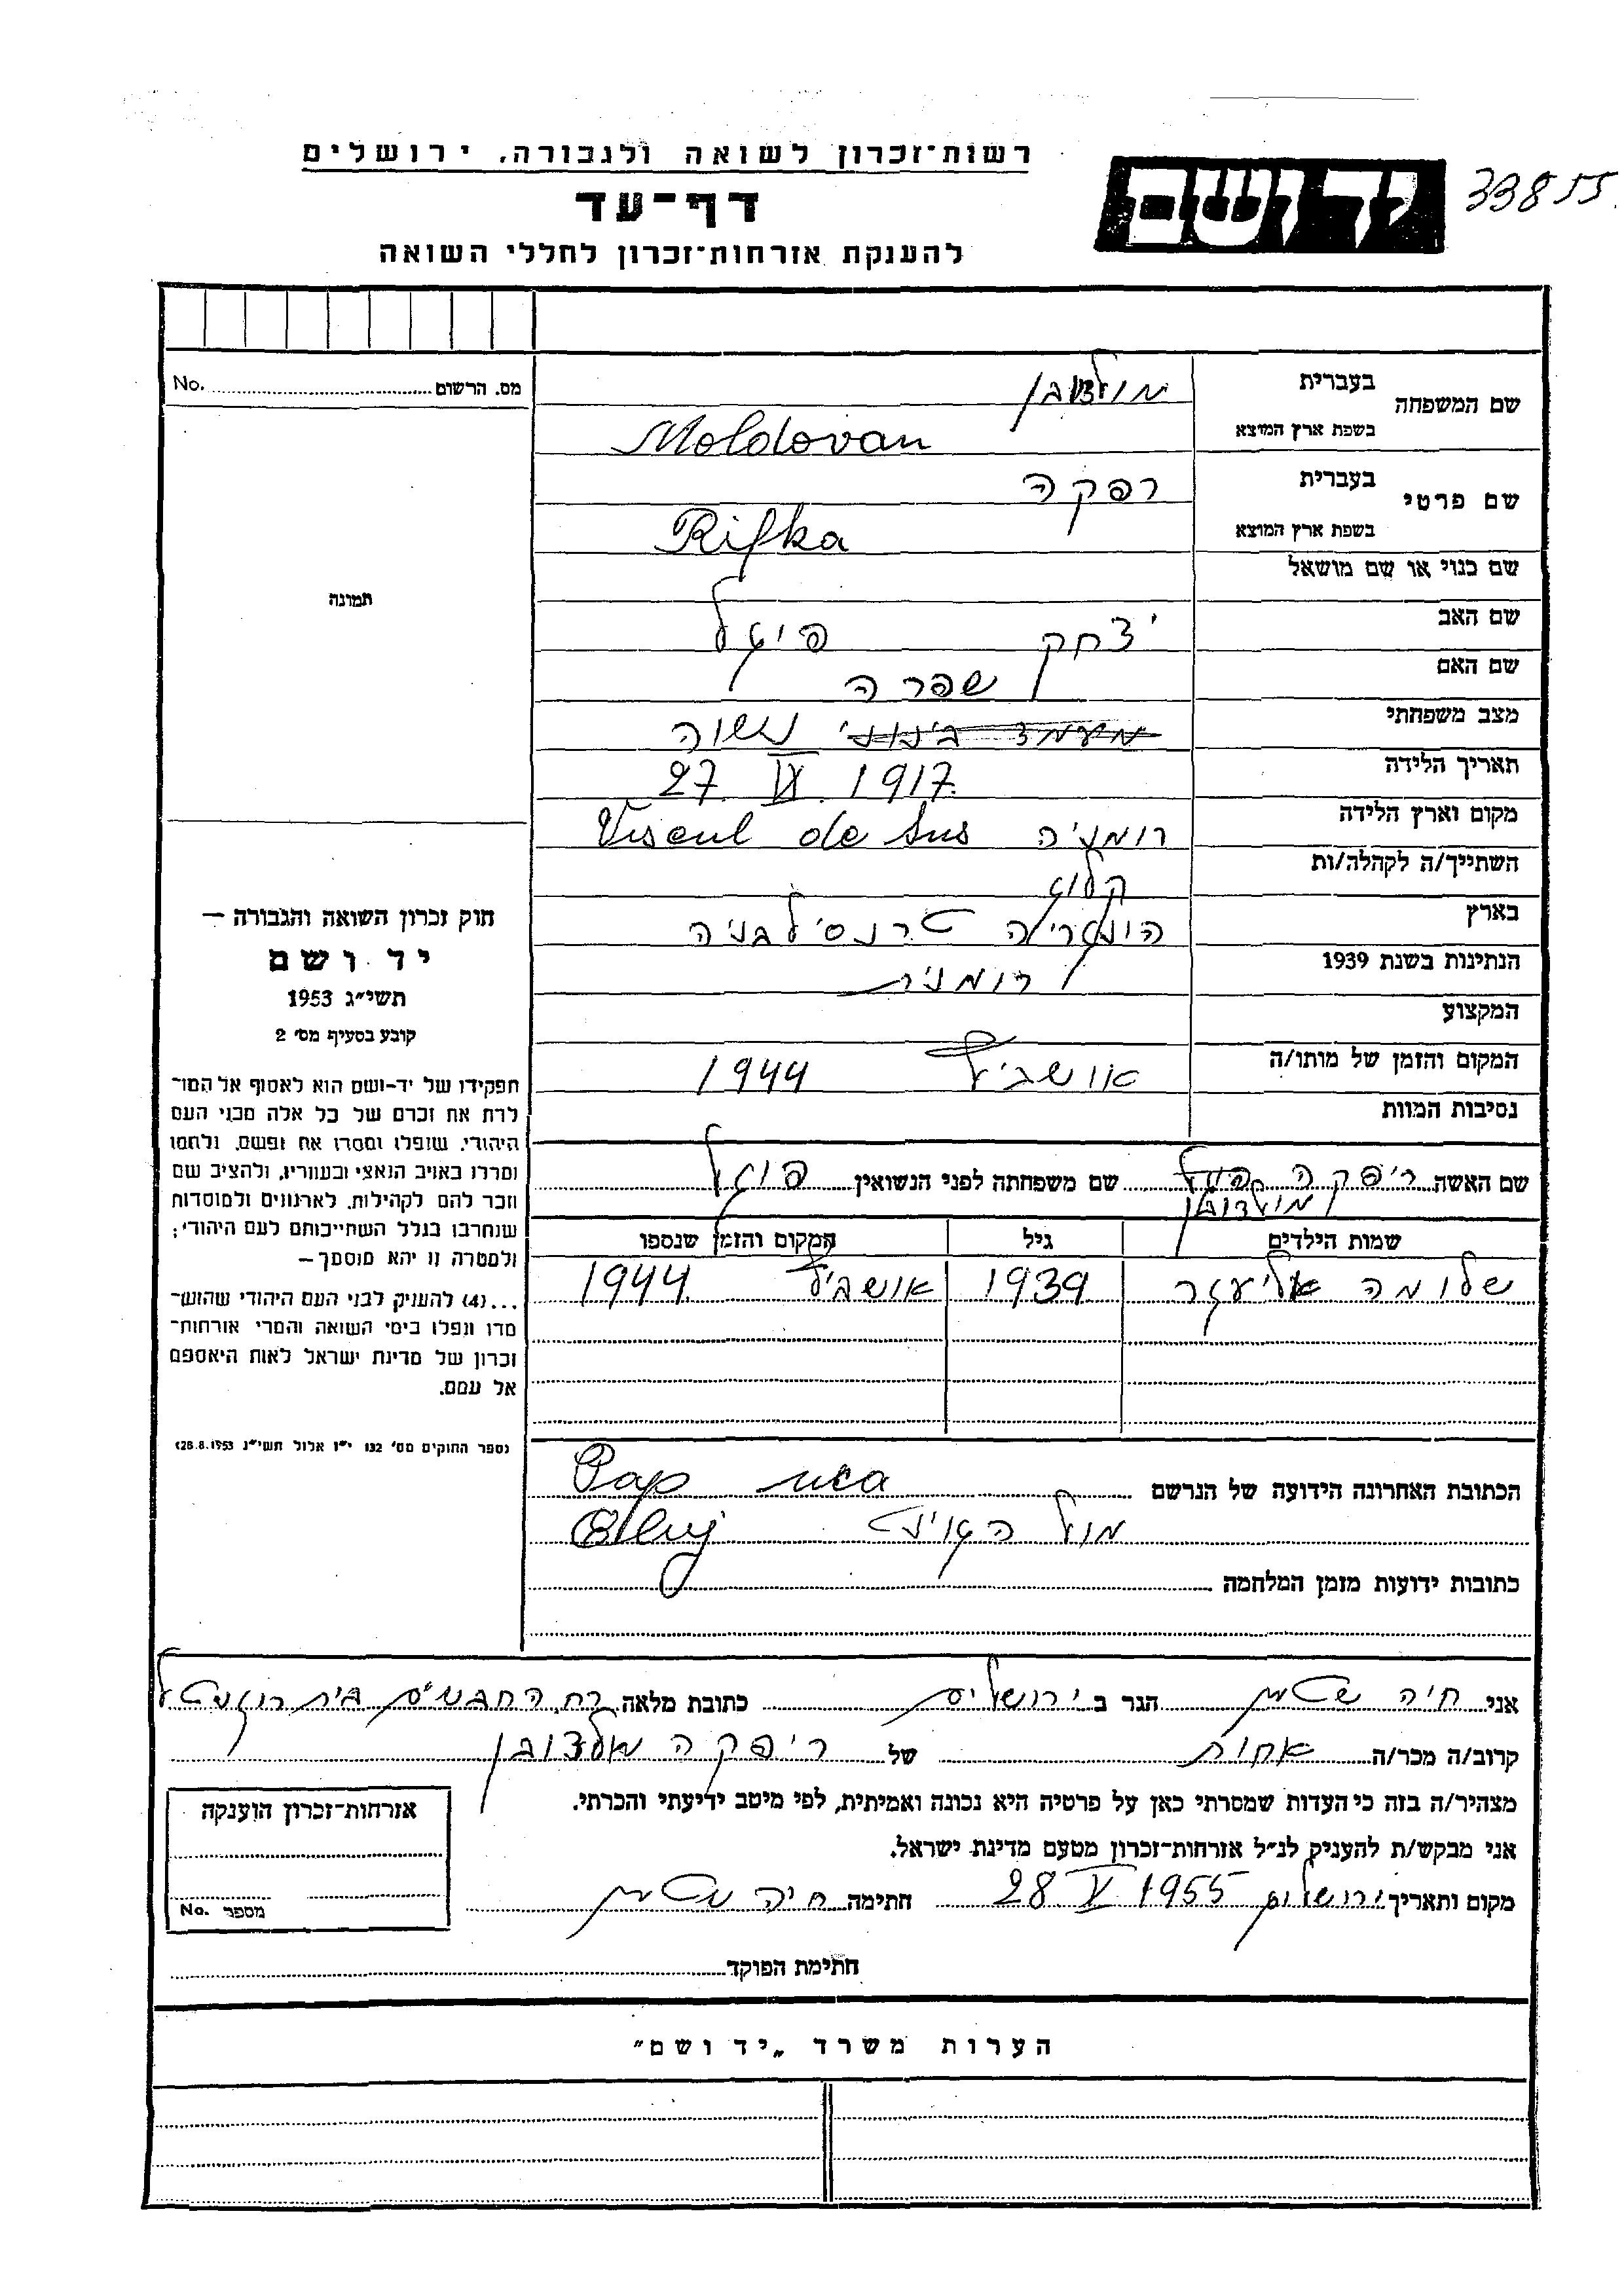 רשות־זכרון לשואה ולגבורה. ירושלים
דף־עד
להענקת אזרחות־זכרון לחללי השואה
יד ושם
33855
מס. הרשום No.
שם המשפחה בעברית מולדובן
בשפת ארץ המוצא Moldovan
שם פרטי בעברית רפקה
בשפת ארץ המוצא Rifka
שם כנוי או שם מושאל
שם האב יצחק
שם האם שפרה
מצב משפחתי מעמד בינוני נשוה
תאריך הלידה 27 VI 1917
מקום וארץ הלידה רומניה Viseul de Sus
השתייך/ה לקהלה/ות קלוז
בארץ הונגריה טרנסילבניה
הנתינות בשנת 1939 רומנית
המקצוע
המקום והזמן של מותו/ה אושביץ 1944
נסיבות המוות
תמונה
חוק זכרון השואה והגבורה —
יד ושם
תשי״ג 1953
קובע בסעיף מס׳ 2
תפקידו של יד-ושם הוא לאסוף אל המו־
לדת את זכרם של כל אלה מבני העם
היהודי, שנפלו ומסרו את נפשם, נלחמו
ומרדו באויב הנאצי ובעוזריו, ולהציב שם
וזכר להם לקהילות, לארגונים ולמוסדות
שנחרבו בגלל השתייכותם לעם היהודי;
ולמטרה זו יהא מוסמך—
...(4) להעניק לבני העם היהודי שהוש־
מדו ונפלו בימי השואה והמרי אזרחות־
זכרון של מדינת ישראל לאות היאספם
אל עמם.
(ספר החוקים מס׳ 132 י״ז אלול תשי״ג 28.8.1953)
שם האשה ריפקה מולדובן שם משפחתה לפני הנשואין
שמות הילדים גיל המקום והזמן שנספו
שלומה אליעזר 1939 אושביץ 1944
הכתובת האחרונה הידועה של הנרשם Pap
מול Cluj
כתובות ידועות מזמן המלחמה
אני חיה הגר ב ירושלים כתובת מלאה רח החבשים בית
קרוב/ה מכר/ה אחות של ריפקה מולדובן
מצהיר/ה בזה כי העדות שמסרתי כאן על פרטיה היא נכונה ואמיתית, לפי מיטב ידיעתי והכרתי.
אני מבקש/ת להעניק לנ״ל אזרחות־זכרון מטעם מדינת ישראל.
מקום ותאריך ירושלים 28 V 1955 חתימה חיה
אזרחות־זכרון הוענקה
מספר No.
חתימת הפוקד
הערות משרד „יד ושם״